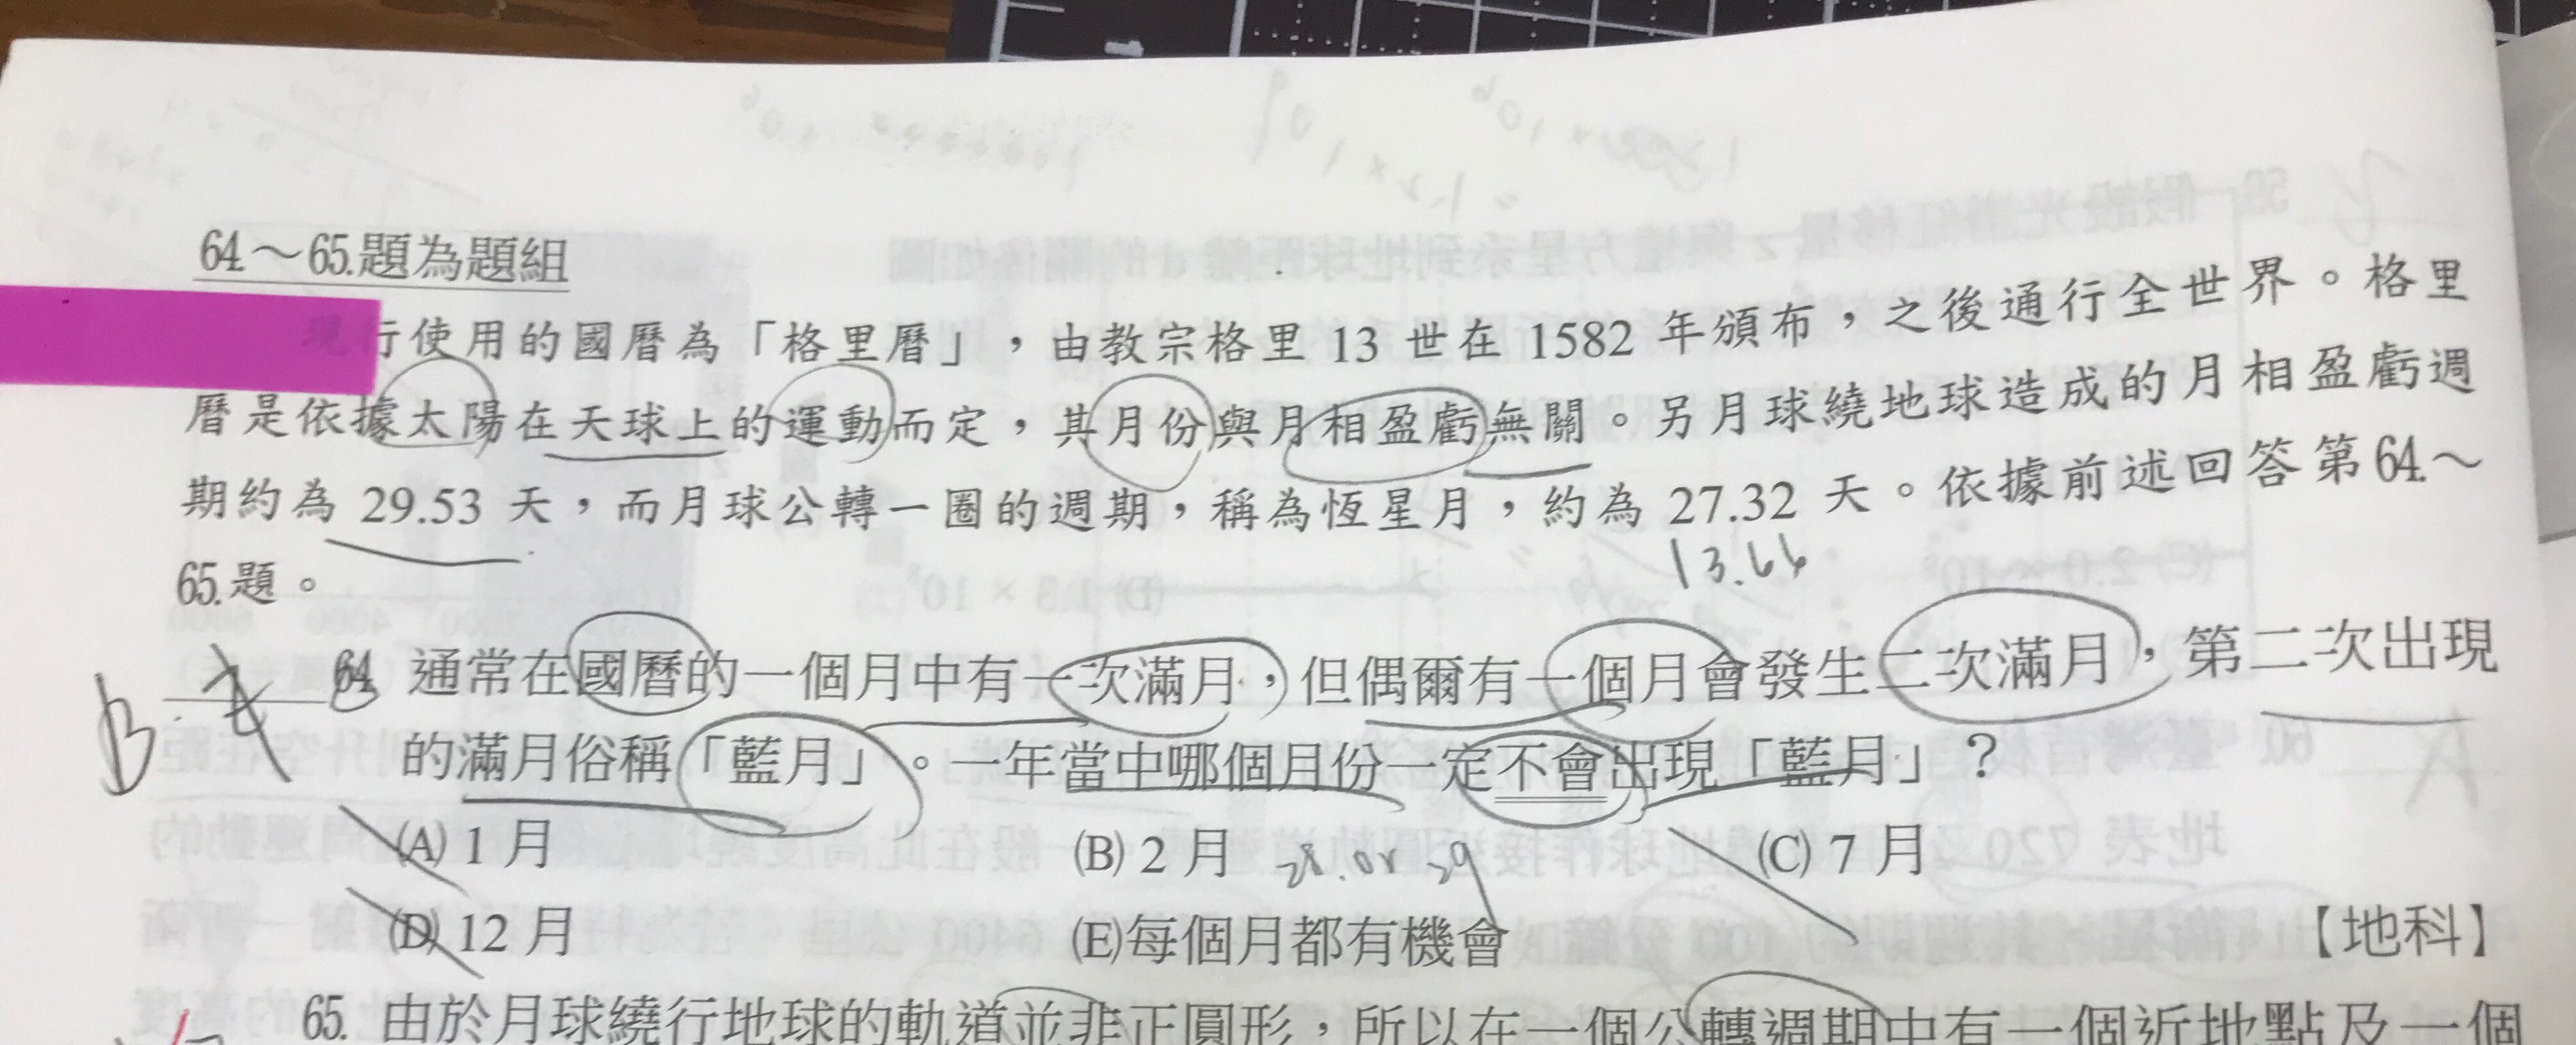 64.~65.題為題組
現行使用的國曆為「格里曆」,由教宗格里 13 世在 1582 年頒布,之後通行全世界。格里
曆是依據太陽在天球上的運動而定,其月份與月相盈虧無關。另月球繞地球造成的月相盈虧週
期約為 29.53 天,而月球公轉一圈的週期,稱為恆星月,約為 27.32 天。依據前述回答第64.~
13.66
65.題。
B 64. 通常在國曆的一個月中有一次滿月,但偶爾有一個月會發生二次滿月,第二次出現
的滿月俗稱「藍月」。一年當中哪個月份一定不會出現「藍月」?
(A) 1 月 (B) 2 月 28.or 29 (C) 7 月
(D) 12 月 (E)每個月都有機會 【地科】
65. 由於月球繞行地球的軌道並非正圓形,所以在一個公轉週期中有一個近地點及一個